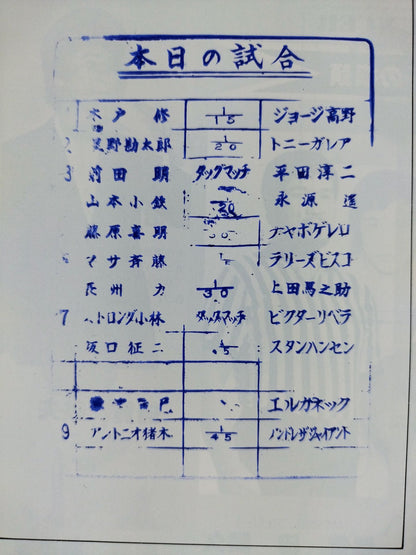 本日の試合
木戸 修 1/15 ジョージ高野
2 荒野勘太郎 1/20 トニーガレア
3 前田 明 タッグマッチ 平田淳二
山本小鉄 20 永源 遥
藤原喜明 30 チャボゲレロ
マサ斉藤 1/ ラリーズビスコ
長州 力 1/30 上田馬之助
7 ストロング小林 タッグマッチ ビクターリベラ
坂口征二 45 スタンハンセン
巳 エルカネック
9 アントニオ猪木 1/45 アンドレザジャイアント